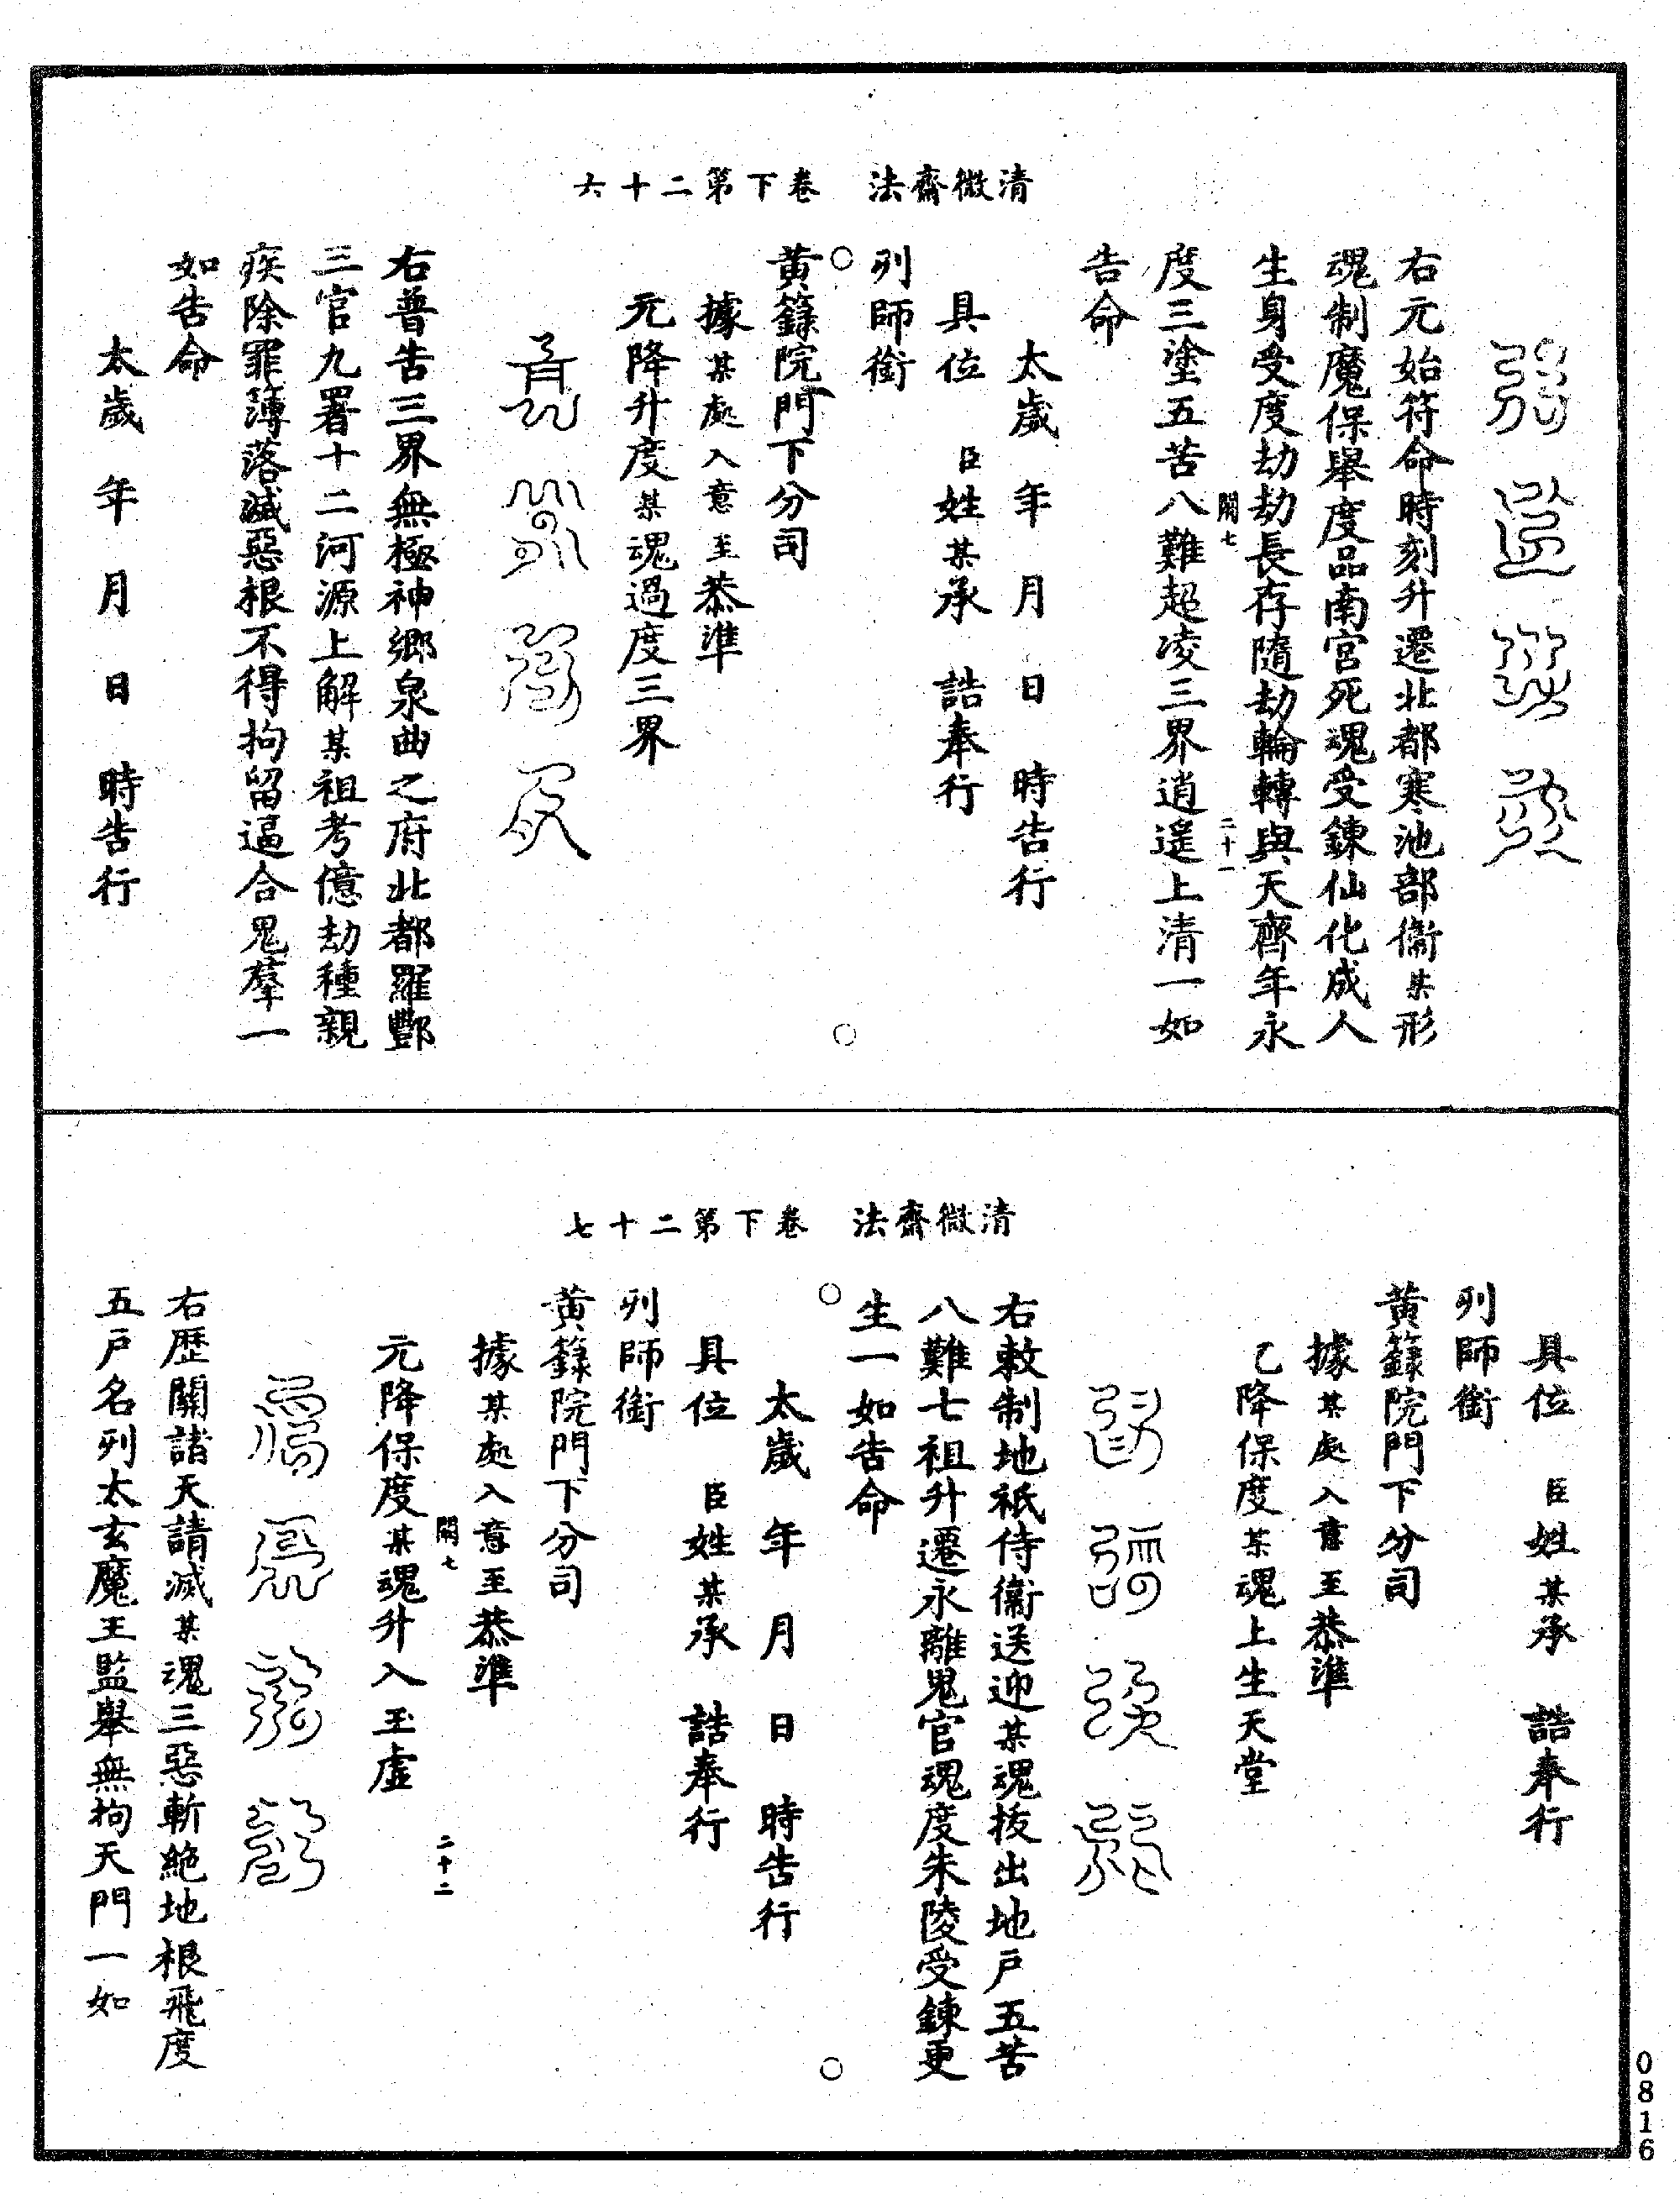 清微齋法　卷下第二十六
右元始符命時刻升遷北都寒池部衞某形
魂制魔保舉度品南宮死魂受鍊仙化成人
生身受度劫劫長存隨劫輪轉與天齊年永
關七　二十一
度三塗五苦八難超凌三界逍遙上清一如
告命
太歲　年　月　日　時告行
具位　臣姓某承　誥奉行
列師銜
黃籙院門下分司
據某處入意至恭準
元降升度某魂過度三界
右普告三界無極神鄉泉曲之府北都羅酆
三官九署十二河源上解某祖考億劫種親
疾除罪簿落滅惡根不得拘留逼合鬼羣一
如告命
太歲　年　月　日　時告行
清微齋法　卷下第二十七
具位　臣姓某承　誥奉行
列師銜
黃籙院門下分司
據某處入意至恭準
元降保度某魂上生天堂
右敕制地祇侍衞送迎某魂拔出地戶五苦
八難七祖升遷永離鬼官魂度朱陵受鍊更
生一如告命
太歲　年　月　日　時告行
具位　臣姓某承　誥奉行
列師銜
黃籙院門下分司
據某處入意至恭準
關七　二十二
元降保度某魂升入玉虛
右歷關諸天請滅某魂三惡斬絕地根飛度
五戶名列太玄魔王監舉無拘天門一如
0816